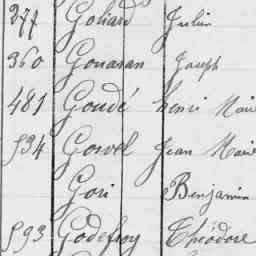 277 Goliard Julien
360 Gonavan Joseph
481 Goudé henri Marie
534 Gorvel Jean Marie
Gori Benjamin
593 Godefroy Théodore